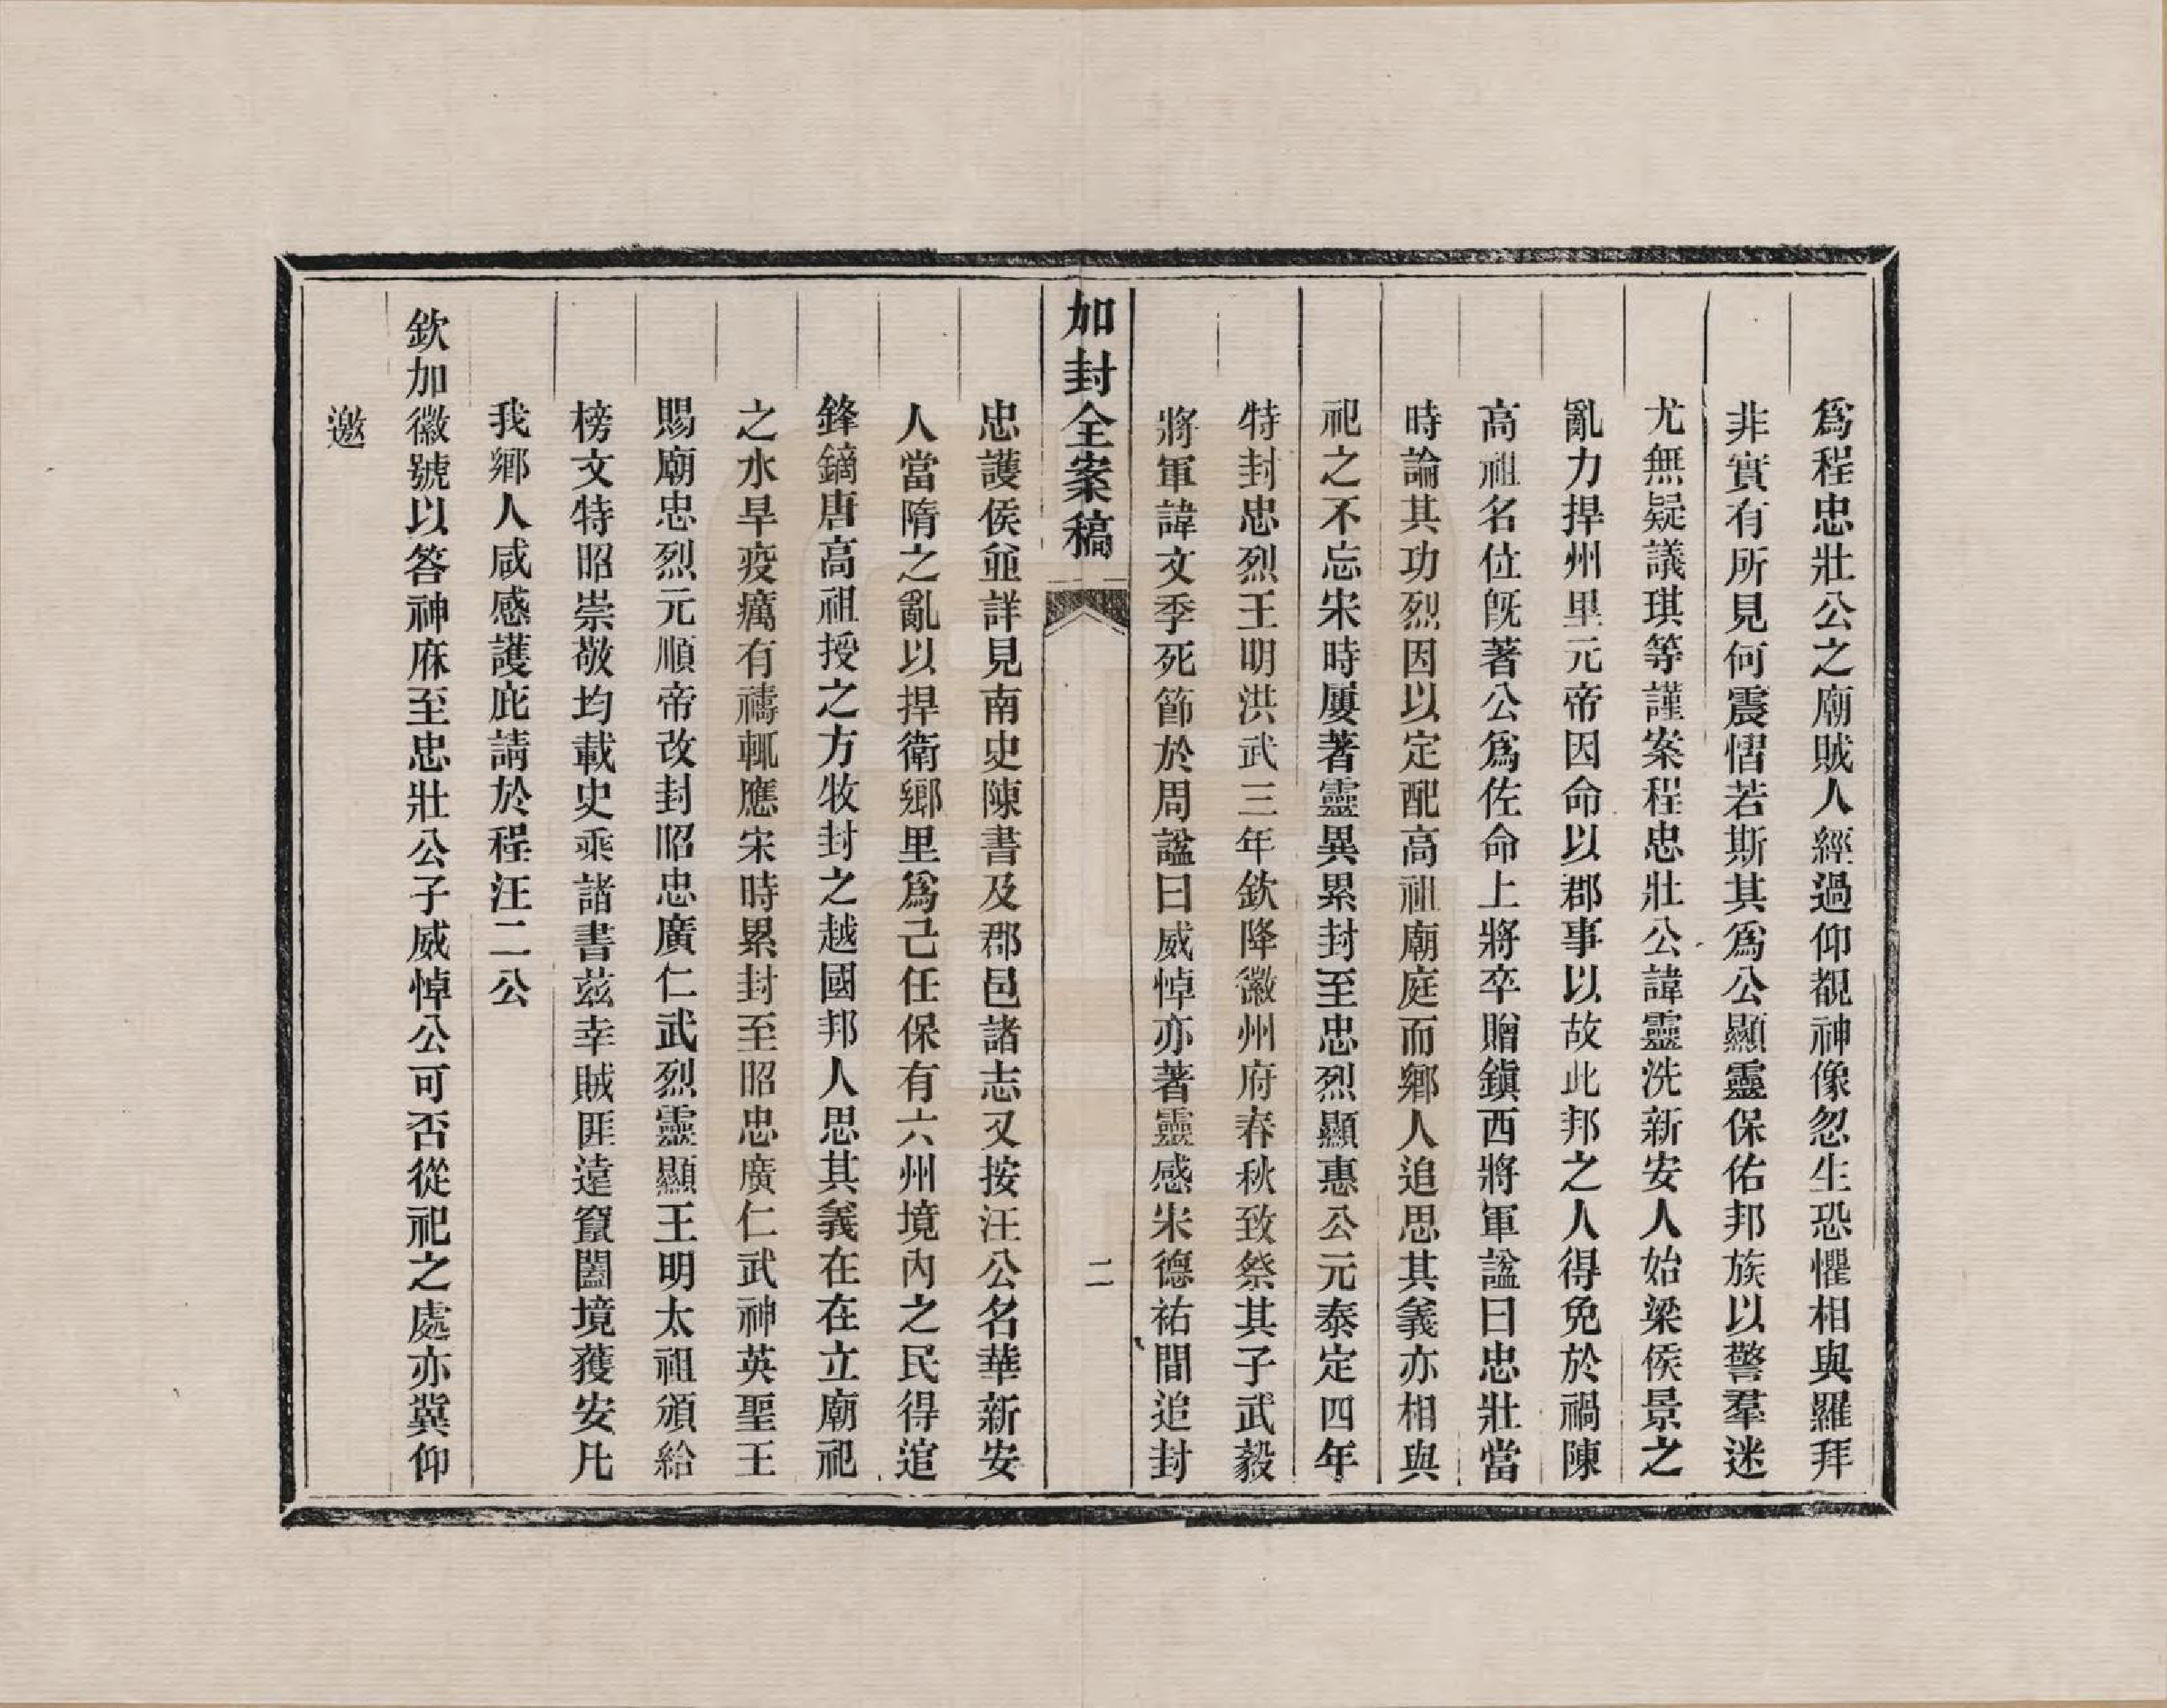 爲程忠壯公之廟賊人經過仰覩神像忽生恐懼相與羅拜
非實有所見何震慴若斯其爲公顯靈保佑邦族以警羣迷
尤無疑議琪等謹案程忠壯公諱靈洗新安人始梁侯景之
亂力捍州里元帝因命以郡事以故此邦之人得免於禍陳
高祖名位旣著公爲佐命上將卒贈鎭西將軍諡曰忠壯當
時論其功烈因以定配高祖廟庭而鄉人追思其義亦相與
祀之不忘宋時屢著靈異累封至忠烈顯惠公元泰定四年
特封忠烈王明洪武三年欽降徽州府春秋致祭其子武毅
將軍諱文季死節於周諡曰威悼亦著靈感宋德祐間追封
加封全案稿 二
忠護侯並詳見南史陳書及郡邑諸志又按汪公名華新安
人當隋之亂以捍衛鄉里爲己任保有六州境內之民得逭
鋒鏑唐高祖授之方牧封之越國邦人思其義在在立廟祀
之水旱疫癘有禱輒應宋時累封至昭忠廣仁武神英聖王
賜廟忠烈元順帝改封昭忠廣仁武烈靈顯王明太祖頒給
榜文特昭崇敬均載史乘諸書茲幸賊匪遠竄闔境獲安凡
我鄉人咸感護庇請於程汪二公
欽加徽號以答神庥至忠壯公子威悼公可否從祀之處亦冀仰
邀